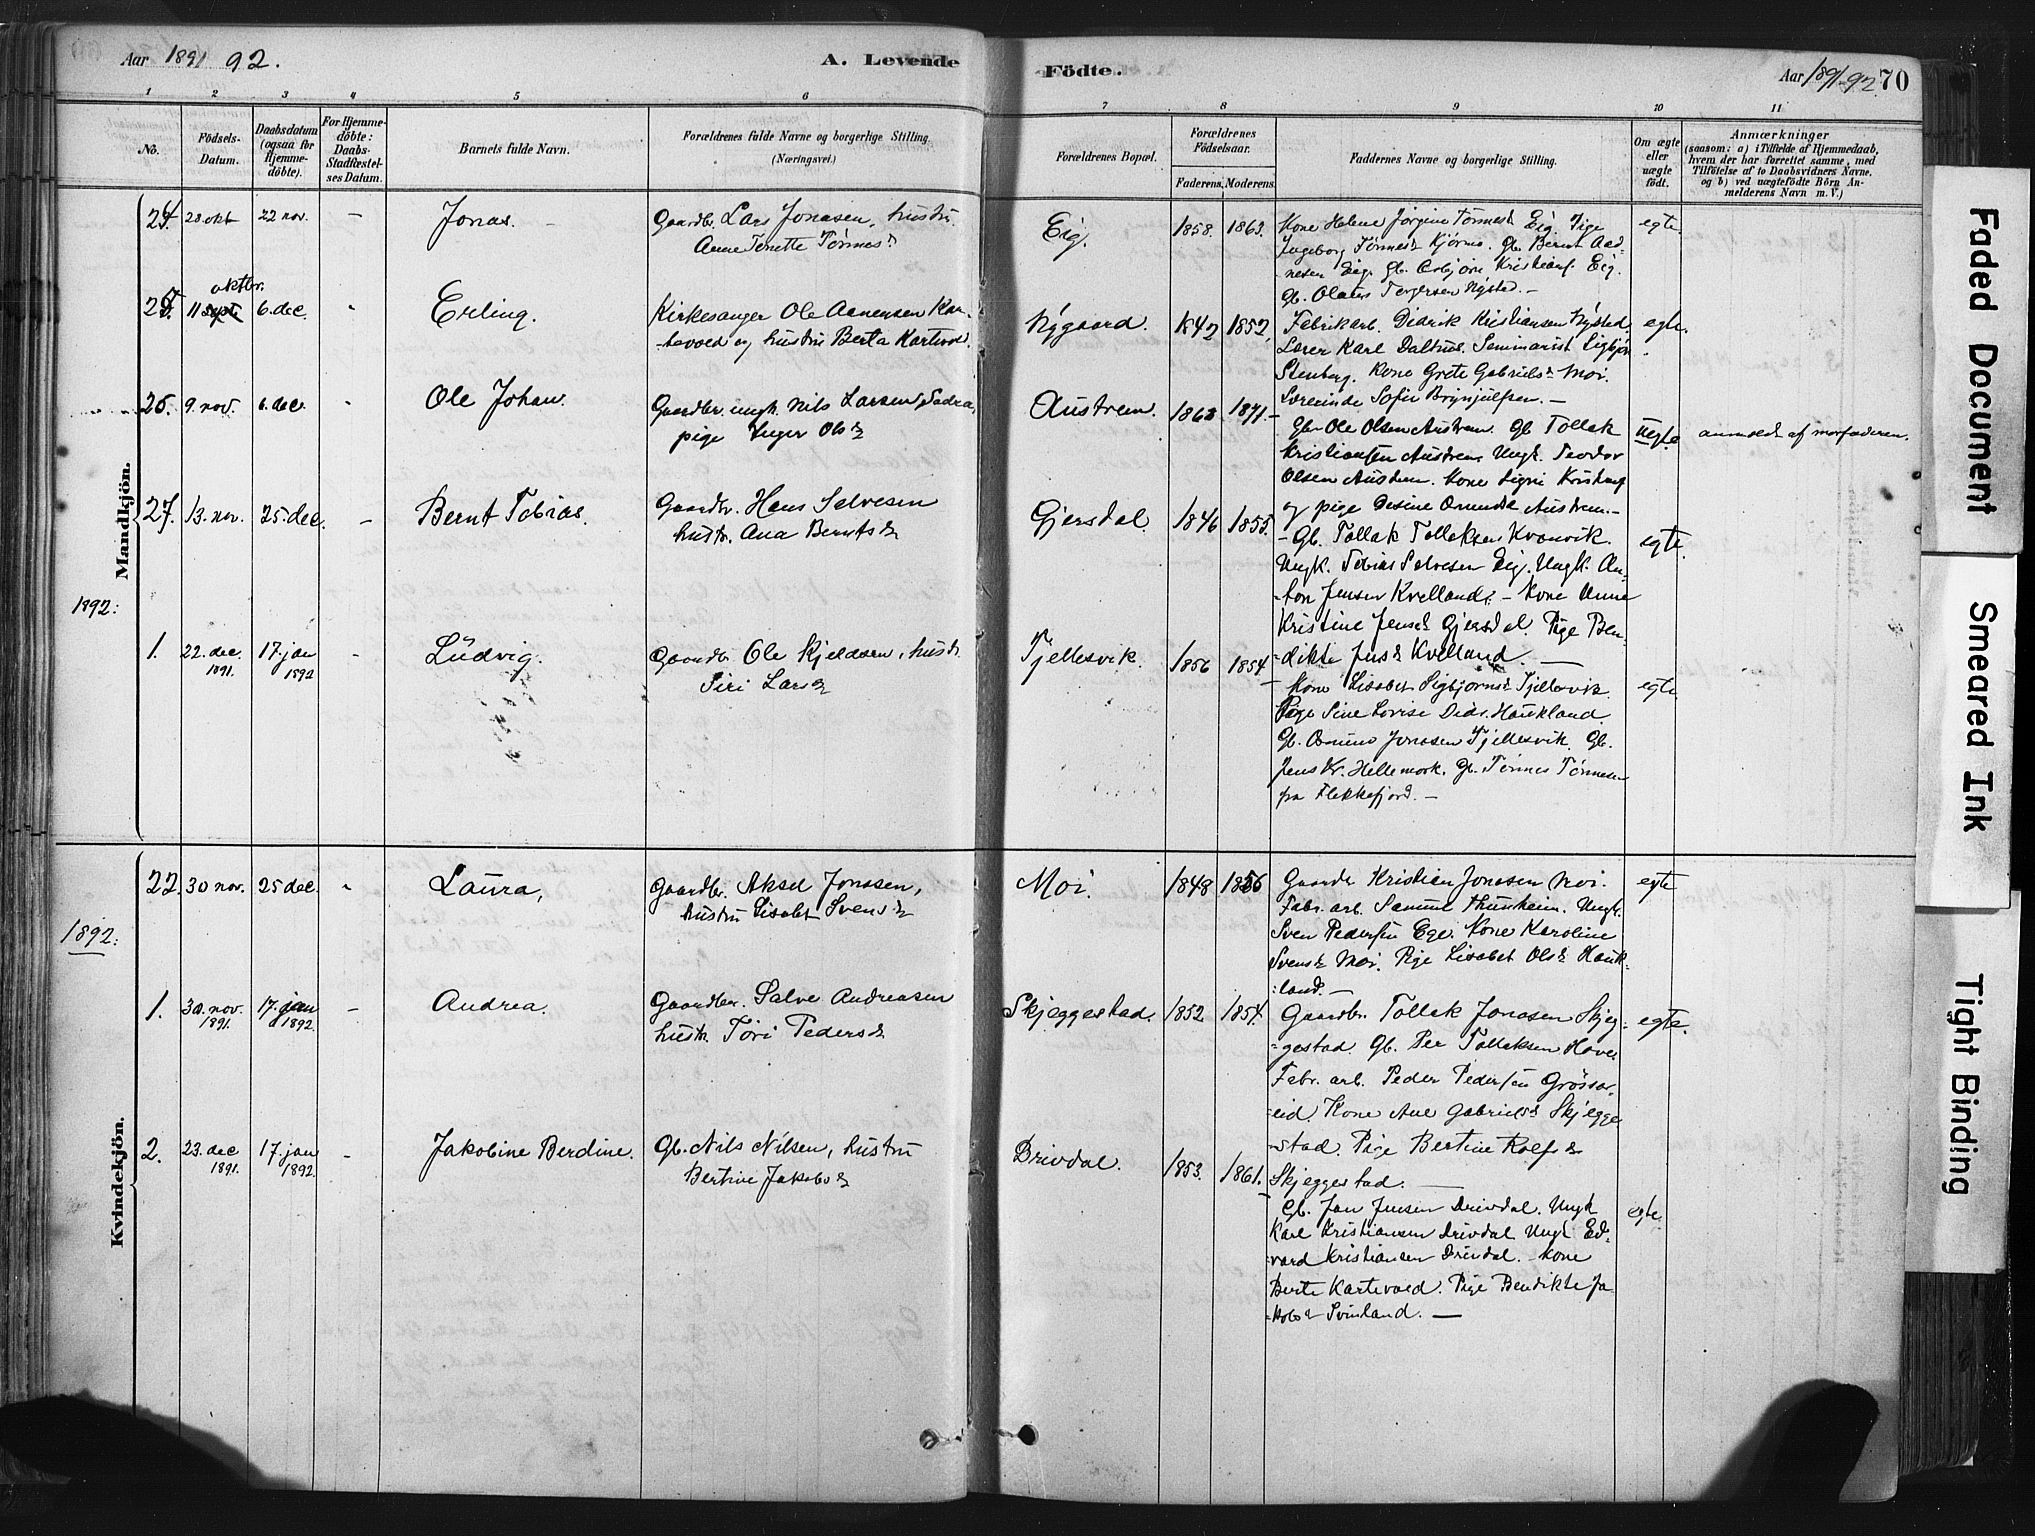 Aar 1891 92.
A. Levende
Födte.
Aar 1891-92
70
1 2 3 4 5 6 7 8 9 10 11
No.
Födsels-
Datum.
Daabsdatum
(ogsaa for
Hjemme-
döbte).
For Hjemme-
döbte:
Daabs-
Stadfæstel-
ses Datum.
Barnets fulde Navn.
Forældrenes fulde Navne og borgerlige Stilling.
(Næringsvei.)
Forældrenes Bopæl.
Forældrenes
Födselsaar.
Faderens. Moderens.
Faddernes Navne og borgerlige Stilling.
Om ægte
eller
uægte
födt.
Anmærkninger
(saasom: a) i Tilfælde af Hjemmedaab,
hvem der har forrettet samme, med
Tilföielse af to Daabsvidners Navne.
og b) ved uægtefödte Börn An-
melderens Navn m. V.)
Mandkjön.
24. 28 okt 22 nov. - Jonas. -
Gaardbr. Lars Jonasen, hustru
Anne Tonette Tørresd.
Eig. 1858. 1863.
Kone Helene Jørgine Tørresd Eig. Pige
Ingeborg Tørresd Kjørmo. Gb. Bernt Aad-
nesen Eig. Gb. Asbjørn Kristians. Eig.
Gb. Olaus Torgersen Nysted. -
egte.
25. 11 sept. oktbr. 6. dec. - Erling.
Kirkesanger Ole Aanensen Kar-
tevoed og hustru Berta Kartevold.
Nygaard. 1842 1852,
Fabrikarb. Didrik Kristiansen Nysted.
Lærer Karl Daltus. Seminarist Sigbjør
Stenberg. Kone Grete Gabrielsd Moi.
Lærerinde Sofie Brynjulfsen. -
egte.
26. 9. nov. 6. dec. - Ole Johan.
Gaardbr. ungk. Nils Larsen Sadra,
pige Inger Olsd
Austrem. 1863 1871-
Gbr Ole Olsen Austrem. Gb. Tollak
Kristiansen Austrem. Ungk. Teodor
Olsen Austrem. Kone Signe Kristians
og pige Desine Omundsd Austrem.-
Uegte anmeldt af morfaderen.
27. 13. nov. 25. dec. - Bernt Tobias.
Gaardbr. Hans Salvesen
hustr. Ana Berntsd
Gjersdal. 1846 1855.
- Gb. Tollak Tollaksen Kvanvik.
Ungk. Tobias Salvesen Eig. Ungk. An-
ton Jensen Kvelland. - Kone Anne
Kristine Jensd Gjersdal. Pige Ben-
dikte Jensd Kvelland. -
egte.
1892:
1. 22. dec. 1891. 17. jan 1892 - Ludvig.
Gaardbr. Ole Kjeldsen, hustr.
Siri Larsd
Tjellesvik. 1856 1854
Kone Lisabet Sigbjørnsd Tjellesvik
Pige Sine Lovise Didr. Haukland.
Gb. Osmund Jonasen Tjellesvik. Gb.
Jens Kr. Hellemork. Gb. Tørres Tørresen
fra Flekkefjord. -
egte
Kvindekjön.
22. 30 nov. 25 dec. - Laura,
Gaardbr. Aksel Jonasen,
hustru Lisabet Svensd
Moi. 1848. 1856
Gaardr Kristian Jonasen Moi.
Fabr. arb. Samuel Thunheim. Ungk.
Sven Pedersen Ege. Kone Karoline
Svensd Moi. Pige Lisabet Olsd Hauk-
land. -
egte
1892:
1. 30. nov. 1891. 17. jan 1892. - Andrea.
Gaardbr. Salve Andreasen
hustr. Tori Pedersd
Skjeggestad. 1852 1854.
Gaardbr. Tollak Jonasen Skjeg-
gestad. Gb. Per Tollaksen Hove.
Fabr. arb. Peder Pedersen Grøssar
eid. Kone Ane Gabrielsd Skjegge
stad. Pige Bertine Rolfsd
Skjeggestad. -
egte.
2. 23. dec 1891. 17. jan 1892. - Jakobine Berdine.
Gb. Nils Nilsen, hustru
Bertine Jakobsd
Drivdal. 1853. 1861.
Gb. Jan Jensen Drivdal. Ungk
Karl Kristiansen Drivdal Ungk Ed-
vard Kristiansen Drivdal. Kone
Berte Kartevoed. Pige Bendikte Ja
kobsd Svinland. -
egte
Faded Document
Smeared Ink
Tight Binding